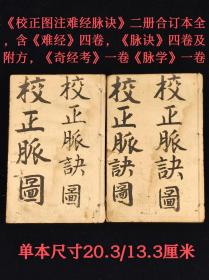 《校正图注难经脉诀》二册合订本全
，含《难经》四卷，《脉诀》四卷及
附方，《奇经考》一卷《脉学》一卷
校正脈訣圖
校正脈圖
校正脈訣圖
校正脈圖
单本尺寸20.3/13.3厘米